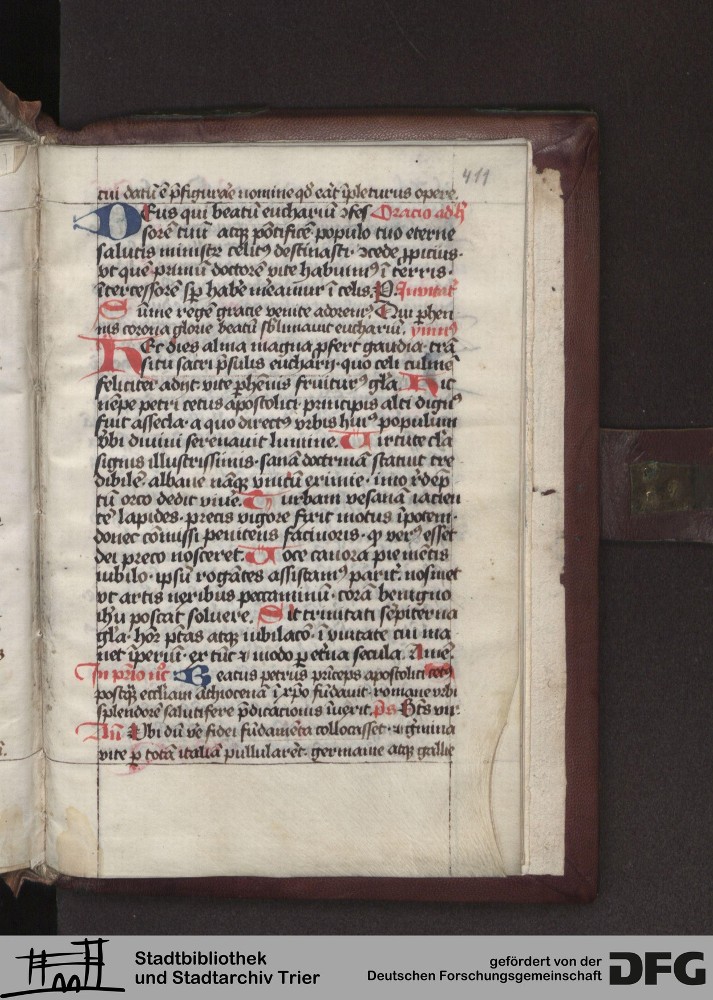 411
cui datū ē p̄figurae nomine qd̄ eāt īpleturus opere.
Deus qui beatū euchariū ↄfes Oracio ad hꝫ
sorē tuū atqꝫ pōtificē populo tuo eterne
salutis ministrꝫ celitꝰ destinasti· ↄcede ꝓpicius·
vt quē primū doctorē vite habuimꝰ ī terris·
ītercessorē sꝑ habe͛ m͛eamur ī celis. P. Inuitat͛
Sūme regē gracie venite adoremꝰ Qui ꝑhen
nis corona glorie beatū sb̄limauit euchariū. ymnꝰ
Hec dies alma magna ꝓfert gaudia· trā
situ sacri p̄sulis eucharij· quo celi culmē
feliciter adijt· vite ꝑhēnis fruiturꝰ gl̄a. Hic
nēpe petri cetus apostolici· principis alti dignꝰ
fuit assecla· a quo directꝰ vrbis huiꝰ populum
vbi diuini serenauit lumine. Uirtute cl̄a
signis illustrissimis· sanā doctrinā statuit cre
dibilē· albane nāqꝫ vnitū eximie· imo rēdēp
tū orco dedit viue͛. Turbam vesana iacien
tē lapides· precis vigore fixit motus īpotem·
donec cōmissi penitens facinoris· qꝫ verꝰ esset
dei preco nosceret. Uoce canora pie mētis
iubilo· ipsū rogātes assistamꝰ parit͛· nosmet
vt artis neribus peccaminū· corā benigno
ihū poscat soluere. Sit trinitati sēpiterna
gl̄a· honꝫ p̄tas atqꝫ iubilacō· ī vnitate cui ma
net īperiū· ex tūc ⁊ modo ꝑ etna secula. Amē.
In prīo nꝰ Beatus petrus prīceps apostolici cetꝰ
postqꝫ eccl̄iam āthiocenā ī xp̄o fūdauit· romane vrbi
splendorē salutifere p̄dicacionis īuexit. ps Btūs vir.
An̄ Vbi dū ve͛ fidei fūdamēta collocasset· ⁊ ger̄mina
vite ꝑ totā italiā pullularēt· germanie atqꝫ gallie
Stadtbibliothek
und Stadtarchiv Trier
gefördert von der
Deutschen Forschungsgemeinschaft
DFG